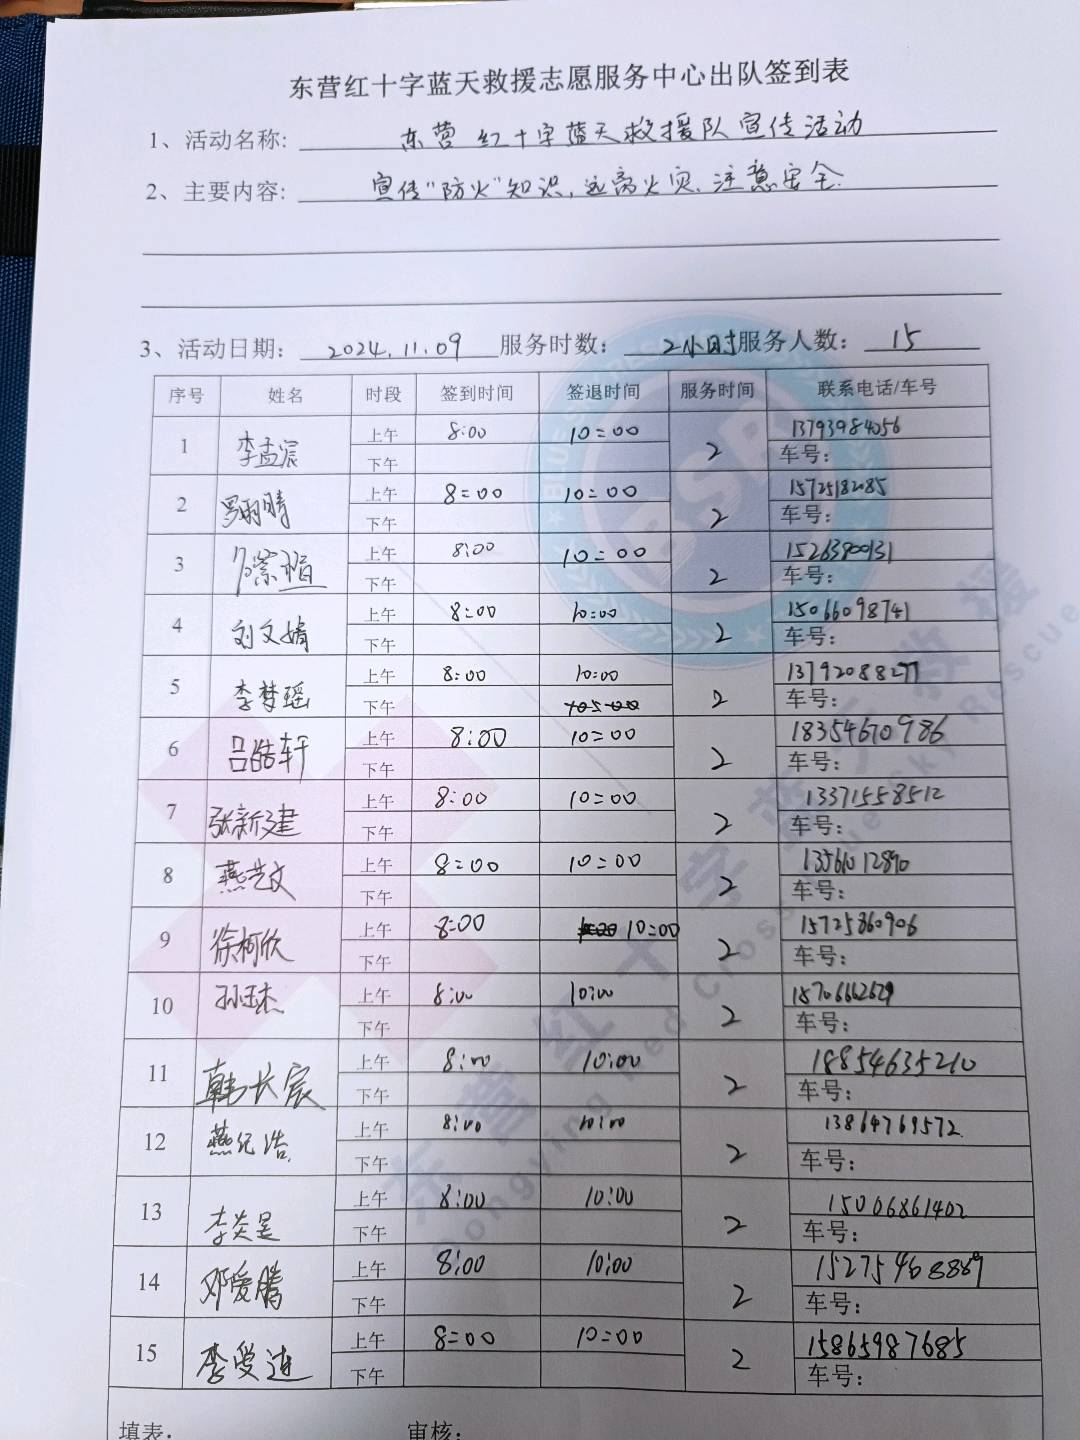 东营红十字蓝天救援志愿服务中心出队签到表
1、活动名称: 东营红十字蓝天救援队宣传活动
2、主要内容: 宣传"防火"知识,远离火灾、注意安全.
3、活动日期: 2024.11.09 服务时数: 2小时 服务人数: 15
序号 姓名 时段 签到时间 签退时间 服务时间 联系电话/车号
1 李孟宸 上午 8:00 10:00 2 13793984056
下午 车号:
2 罗雨晴 上午 8:00 10:00 2
下午 车号:
3 上午 8:00 10:00 2
下午 车号:
4 刘文婧 上午 8:00 10:00 2 15066098741
下午 车号:
5 李梦瑶 上午 8:00 10:00 2 13792088277
下午 车号:
6 吕皓轩 上午 8:00 10:00 2 18354670986
下午 车号:
7 张新建 上午 8:00 10:00 2 13371558512
下午 车号:
8 燕艺文 上午 8:00 10:00 2
下午 车号:
9 徐柯欣 上午 8:00 10:00 2 15725860906
下午 车号:
10 孙钰杰 上午 8:00 10:00 2 15706662629
下午 车号:
11 韩长宸 上午 8:00 10:00 2 18854635210
下午 车号:
12 燕纪浩 上午 8:00 10:00 2 13864769572
下午 车号:
13 李炎昊 上午 8:00 10:00 2 15006861402
下午 车号:
14 邓爱腾 上午 8:00 10:00 2
下午 车号:
15 李爱连 上午 8:00 10:00 2 15865987685
下午 车号:
填表: 审核:
BSR
东营红十字蓝天救援
Dongying Red Cross Blue Sky Rescue